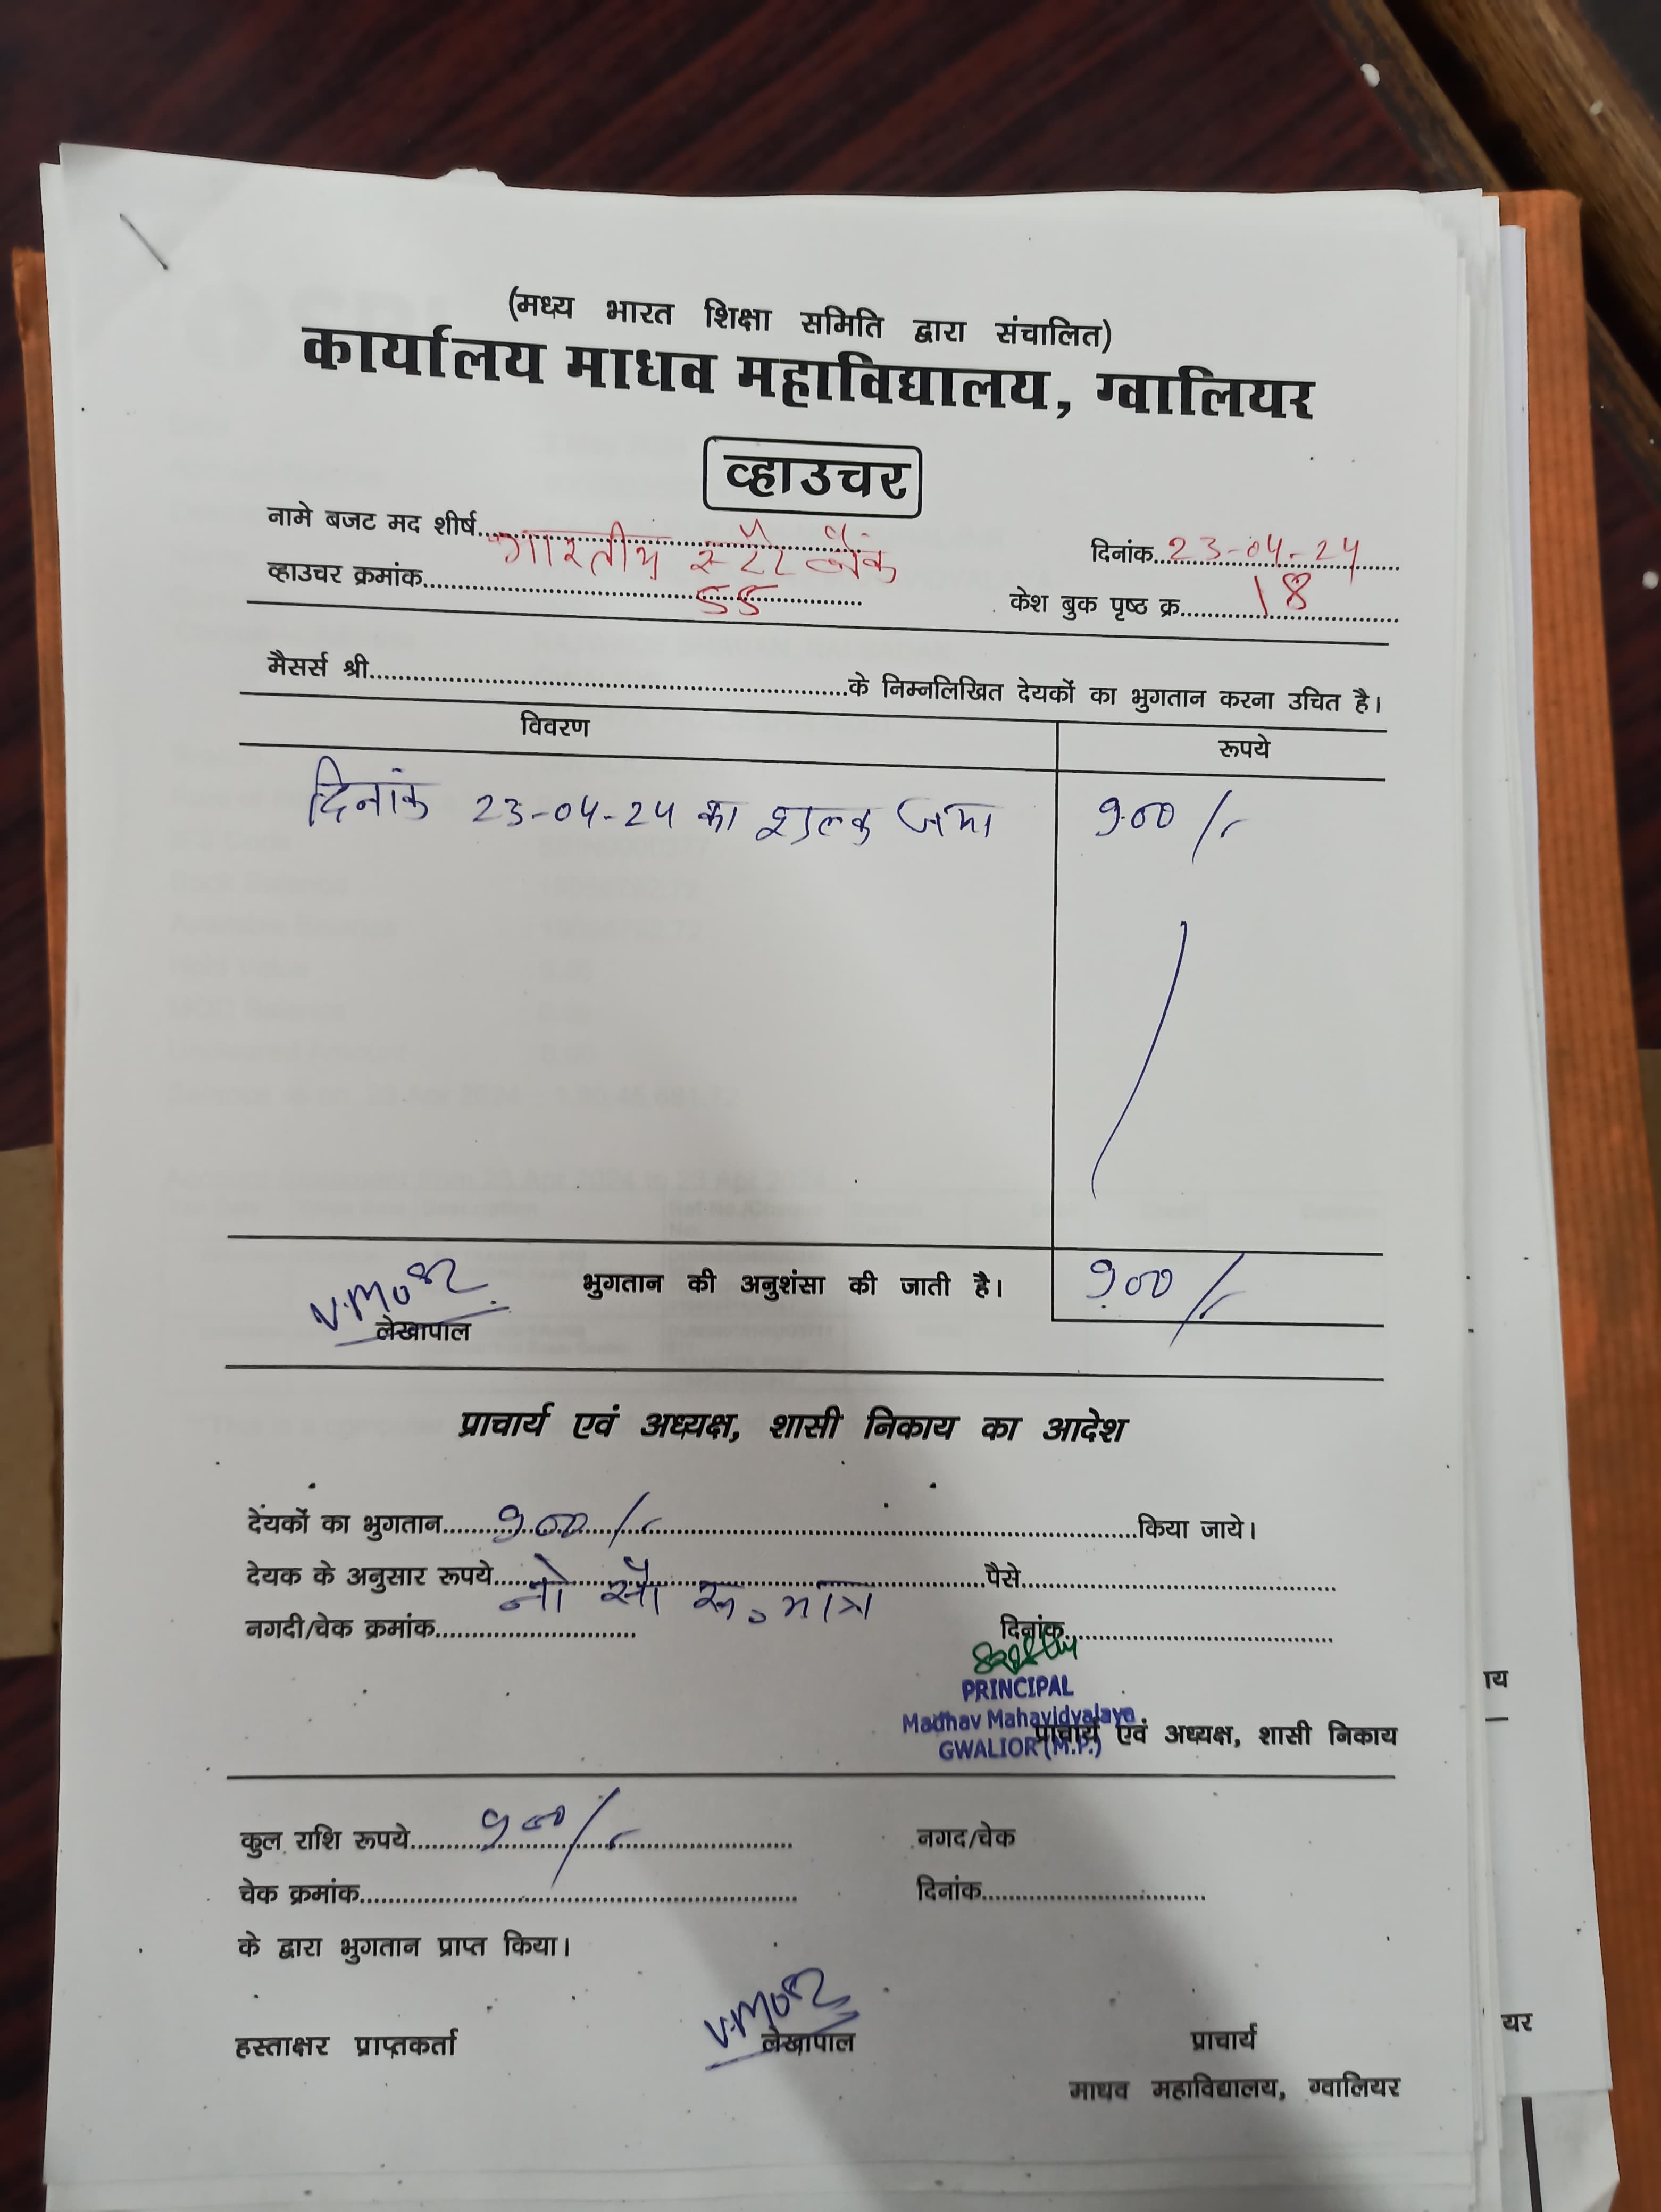 (मध्य भारत शिक्षा समिति द्वारा संचालित)
कार्यालय माधव महाविद्यालय, ग्वालियर
व्हाउचर
नामे बजट मद शीर्ष भारतीय स्टेट बैंक दिनांक 23-04-24
व्हाउचर क्रमांक 55 केश बुक पृष्ठ क्र. 18
मैसर्स श्री के निम्नलिखित देयकों का भुगतान करना उचित है।
विवरण रूपये
दिनांक 23-04-24 का शुल्क जमा 900/-
भुगतान की अनुशंसा की जाती है। 900/-
लेखापाल
प्राचार्य एवं अध्यक्ष, शासी निकाय का आदेश
देंयकों का भुगतान 900/- किया जाये।
देयक के अनुसार रूपये नो सौ रू. मात्र पैसे
नगदी/चेक क्रमांक दिनांक
PRINCIPAL
Madhav Mahavidyalaya
GWALIOR (M.P.)
प्राचार्य एवं अध्यक्ष, शासी निकाय
कुल राशि रूपये 900/- नगद/चेक
चेक क्रमांक दिनांक
के द्वारा भुगतान प्राप्त किया।
हस्ताक्षर प्राप्तकर्ता लेखापाल प्राचार्य
माधव महाविद्यालय, ग्वालियर